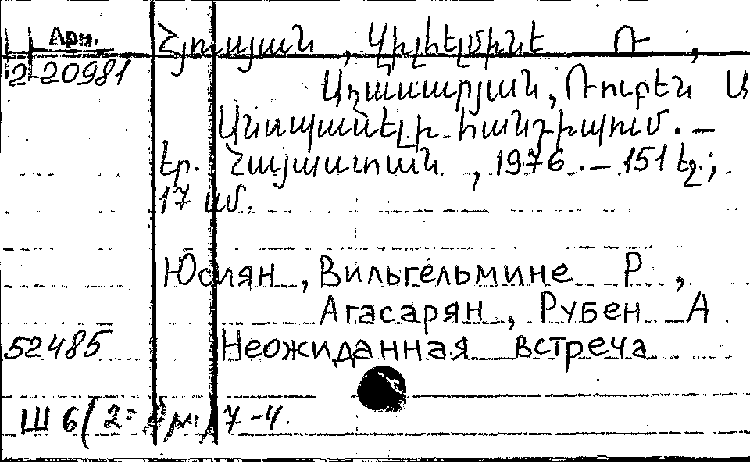 Арм.
Հյուսյան , Վիլհելմինե Ռ ,
2-20981
Աղասարյան, Ռուբեն Ա
Անսպասելի հանդիպում. —
Եր. Հայաստան , 1976 . — 151 էջ ;
17 սմ.
Юсиян , Вильгельмине Р ,
Агасарян , Рубен А
52485 Неожиданная встреча
Ш 6(2=Арм.) 7-4.